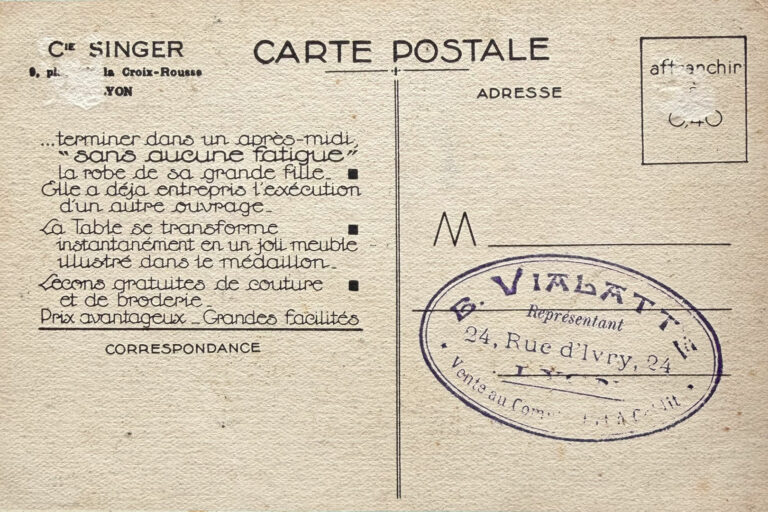 Cie SINGER
9, la Croix-Rousse
CARTE POSTALE
ADRESSE
affranchir
à
0,40
...terminer dans un après-midi,
"sans aucune fatigue"
la robe de sa grande fille_
Elle a déjà entrepris l'exécution
d'un autre ouvrage_
La Table se transforme
instantanément en un joli meuble
illustré dans le médaillon_
Leçons gratuites de couture
et de broderie_
Prix avantageux_Grandes facilités
CORRESPONDANCE
M
VIALATTE
Représentant
24, Rue d'Ivry, 24
Vente au